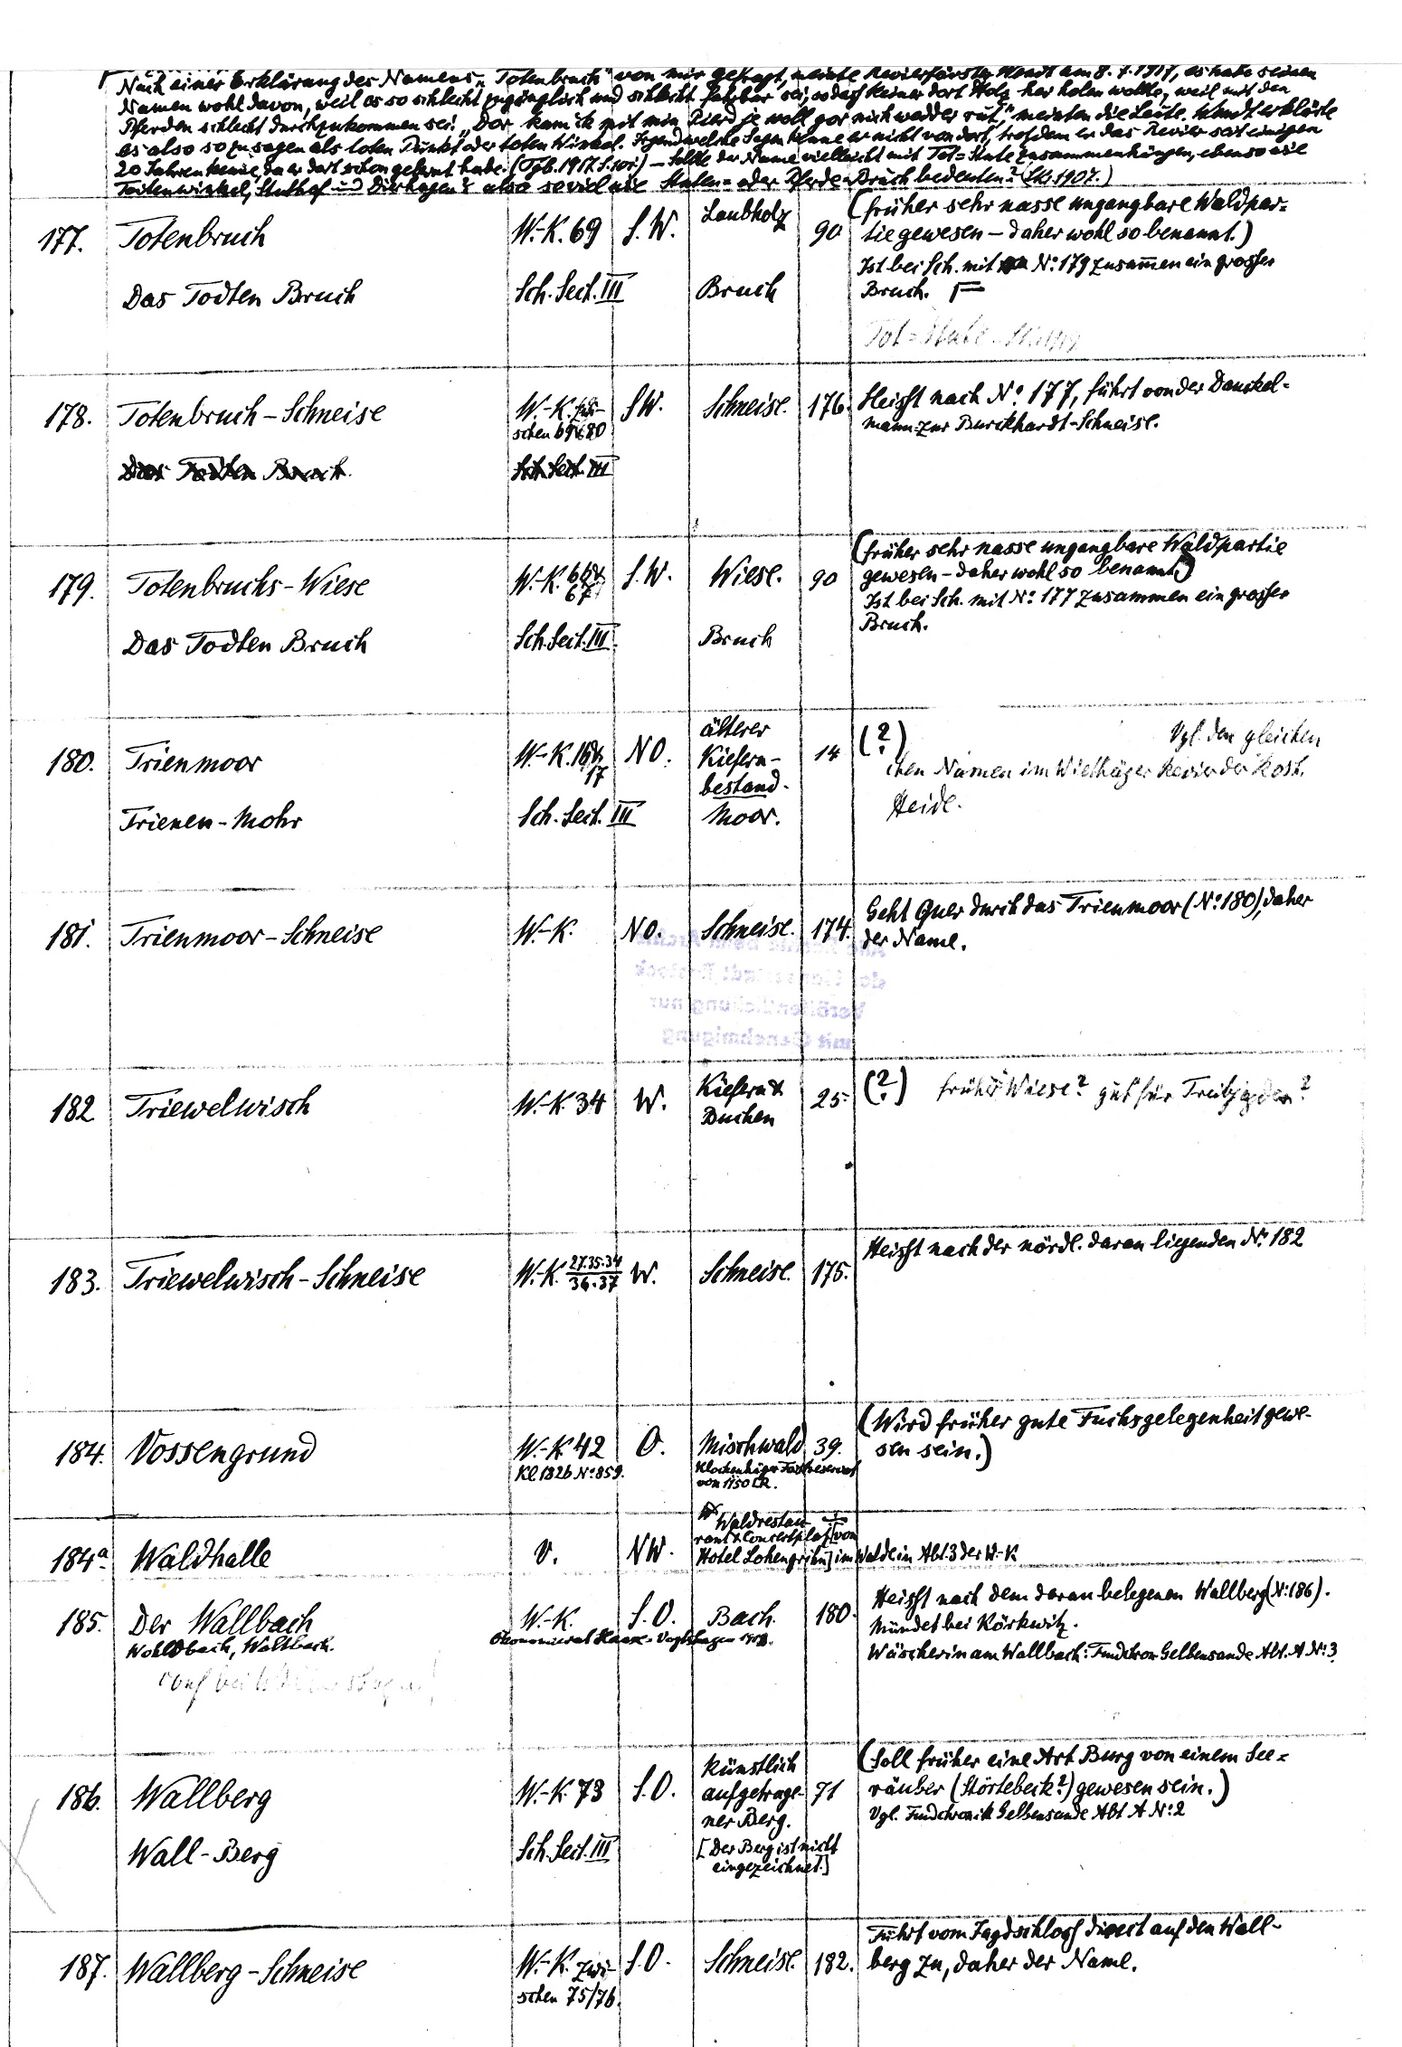 Nach einer Erklärung des Namens „Totenbruch" von mir gefragt, meinte Revierförster Wendt am 8.7.1917, es habe seinen
Namen wohl davon, weil es so schlecht zugänglich und schlecht fahrbar sei, so daß keiner dort Holz her holen wolle, weil mit den
Pferden schlecht durchzukommen sei. „Dor kam ik mit min Pierd je woll gor nich wedder rut", meinten die Leute. Wendt erklärte
es also so zu sagen als toten Punkt oder toten Winkel. Irgendwelche Sagen kenne er nicht von dort, trotzdem er das Revier seit einigen
20 Jahren kenne, da er dort schon gelernt habe. (Tgb. 1917. S. 101) – Sollte der Name vielleicht mit Tot = Stute zusammenhängen, ebenso wie
Toitenwinkel, Stuthof und Dirhagen? also soviel wie Stuten- oder Pferde-Bruch bedeuten? (1907.)
177. Totenbruch W.-K. 69 S.W. Laubholz 90 (früher sehr nasse ungangbare Waldpar=
tie gewesen – daher wohl so benannt.)
Ist bei Sch. mit No 179 zusammen ein grosser
Das Todten Bruch Sch. Sect. III Bruch Bruch.
Tot = Stute
178. Totenbruch-Schneise W.-K. zwi- S.W. Schneise. 176. Heißt nach No 177, führt von der Danckel=
schen 69 & 80 mann- zur Burckhardt-Schneise.
Das Todten Bruch Sch. Sect. III
179. Totenbruchs-Wiese W.-K. 66 & 67 S.W. Wiese. 90 (früher sehr nasse ungangbare Waldpartie
gewesen – daher wohl so benannt.)
Ist bei Sch. mit No 177 zusammen ein grosser
Das Todten Bruch Sch. Sect. III. Bruch Bruch.
180. Trienmoor W.-K. 16 & 17 NO. älterer Kiefern-bestand. 14 (?) Vgl. den gleichen
Namen im Wiethäger Revier der Rost.
Heide.
Trienen-Mohr Sch. Sect. III Moor.
181. Trienmoor-Schneise W.-K. NO. Schneise. 174. Geht Quer durch das Trienmoor (No 180), daher
der Name.
182 Triewelwisch W.-K. 34 W. Kiefern & Buchen 25. (?) früher Wiese? gut für Treibjagden?
183. Triewelwisch-Schneise W.-K. 27.35.34 / 36.37 W. Schneise. 175. Heißt nach der nördl. daran liegenden No 182
184. Vossengrund W.-K 42 O. Mischwald 39. (Wird früher gute Fuchsgelegenheit gewe-
Kl. 1826 No 859. sen sein.)
Klockenhäger Forstreservat
von 1150 □R.
184a. Waldhalle V. NW. Waldrestau-
rant & Concertplatz [von
Hotel Lohengrin] im Walde in Abt. 3 der W.-K
185. Der Wallbach W.-K. S.O. Bach. 180. Heißt nach dem daran belegenen Wallberg (No 186).
Mündet bei Körkwitz.
Wohldbach, Waltbach.
Wäscherin am Wallbach: Fundchron Gelbensande Abt. A No 3.
186. Wallberg W.-K. 73 S.O. künstlich aufgetrage-ner Berg. 71 (Soll früher eine Art Burg von einem See=
räuber (Störtebeck?) gewesen sein.)
Vgl. Fundchronik Gelbensande Abt A No 2
Wall-Berg Sch. Sect. III [Der Berg ist nicht
eingezeichnet.]
187. Wallberg-Schneise W.-K. zwi- S.O. Schneise. 182. Führt vom Jagdschloß direct auf den Wall-
schen 75/76. berg zu, daher der Name.
der Hansestadt Rostock
Veröffentlichung nur
mit Genehmigung